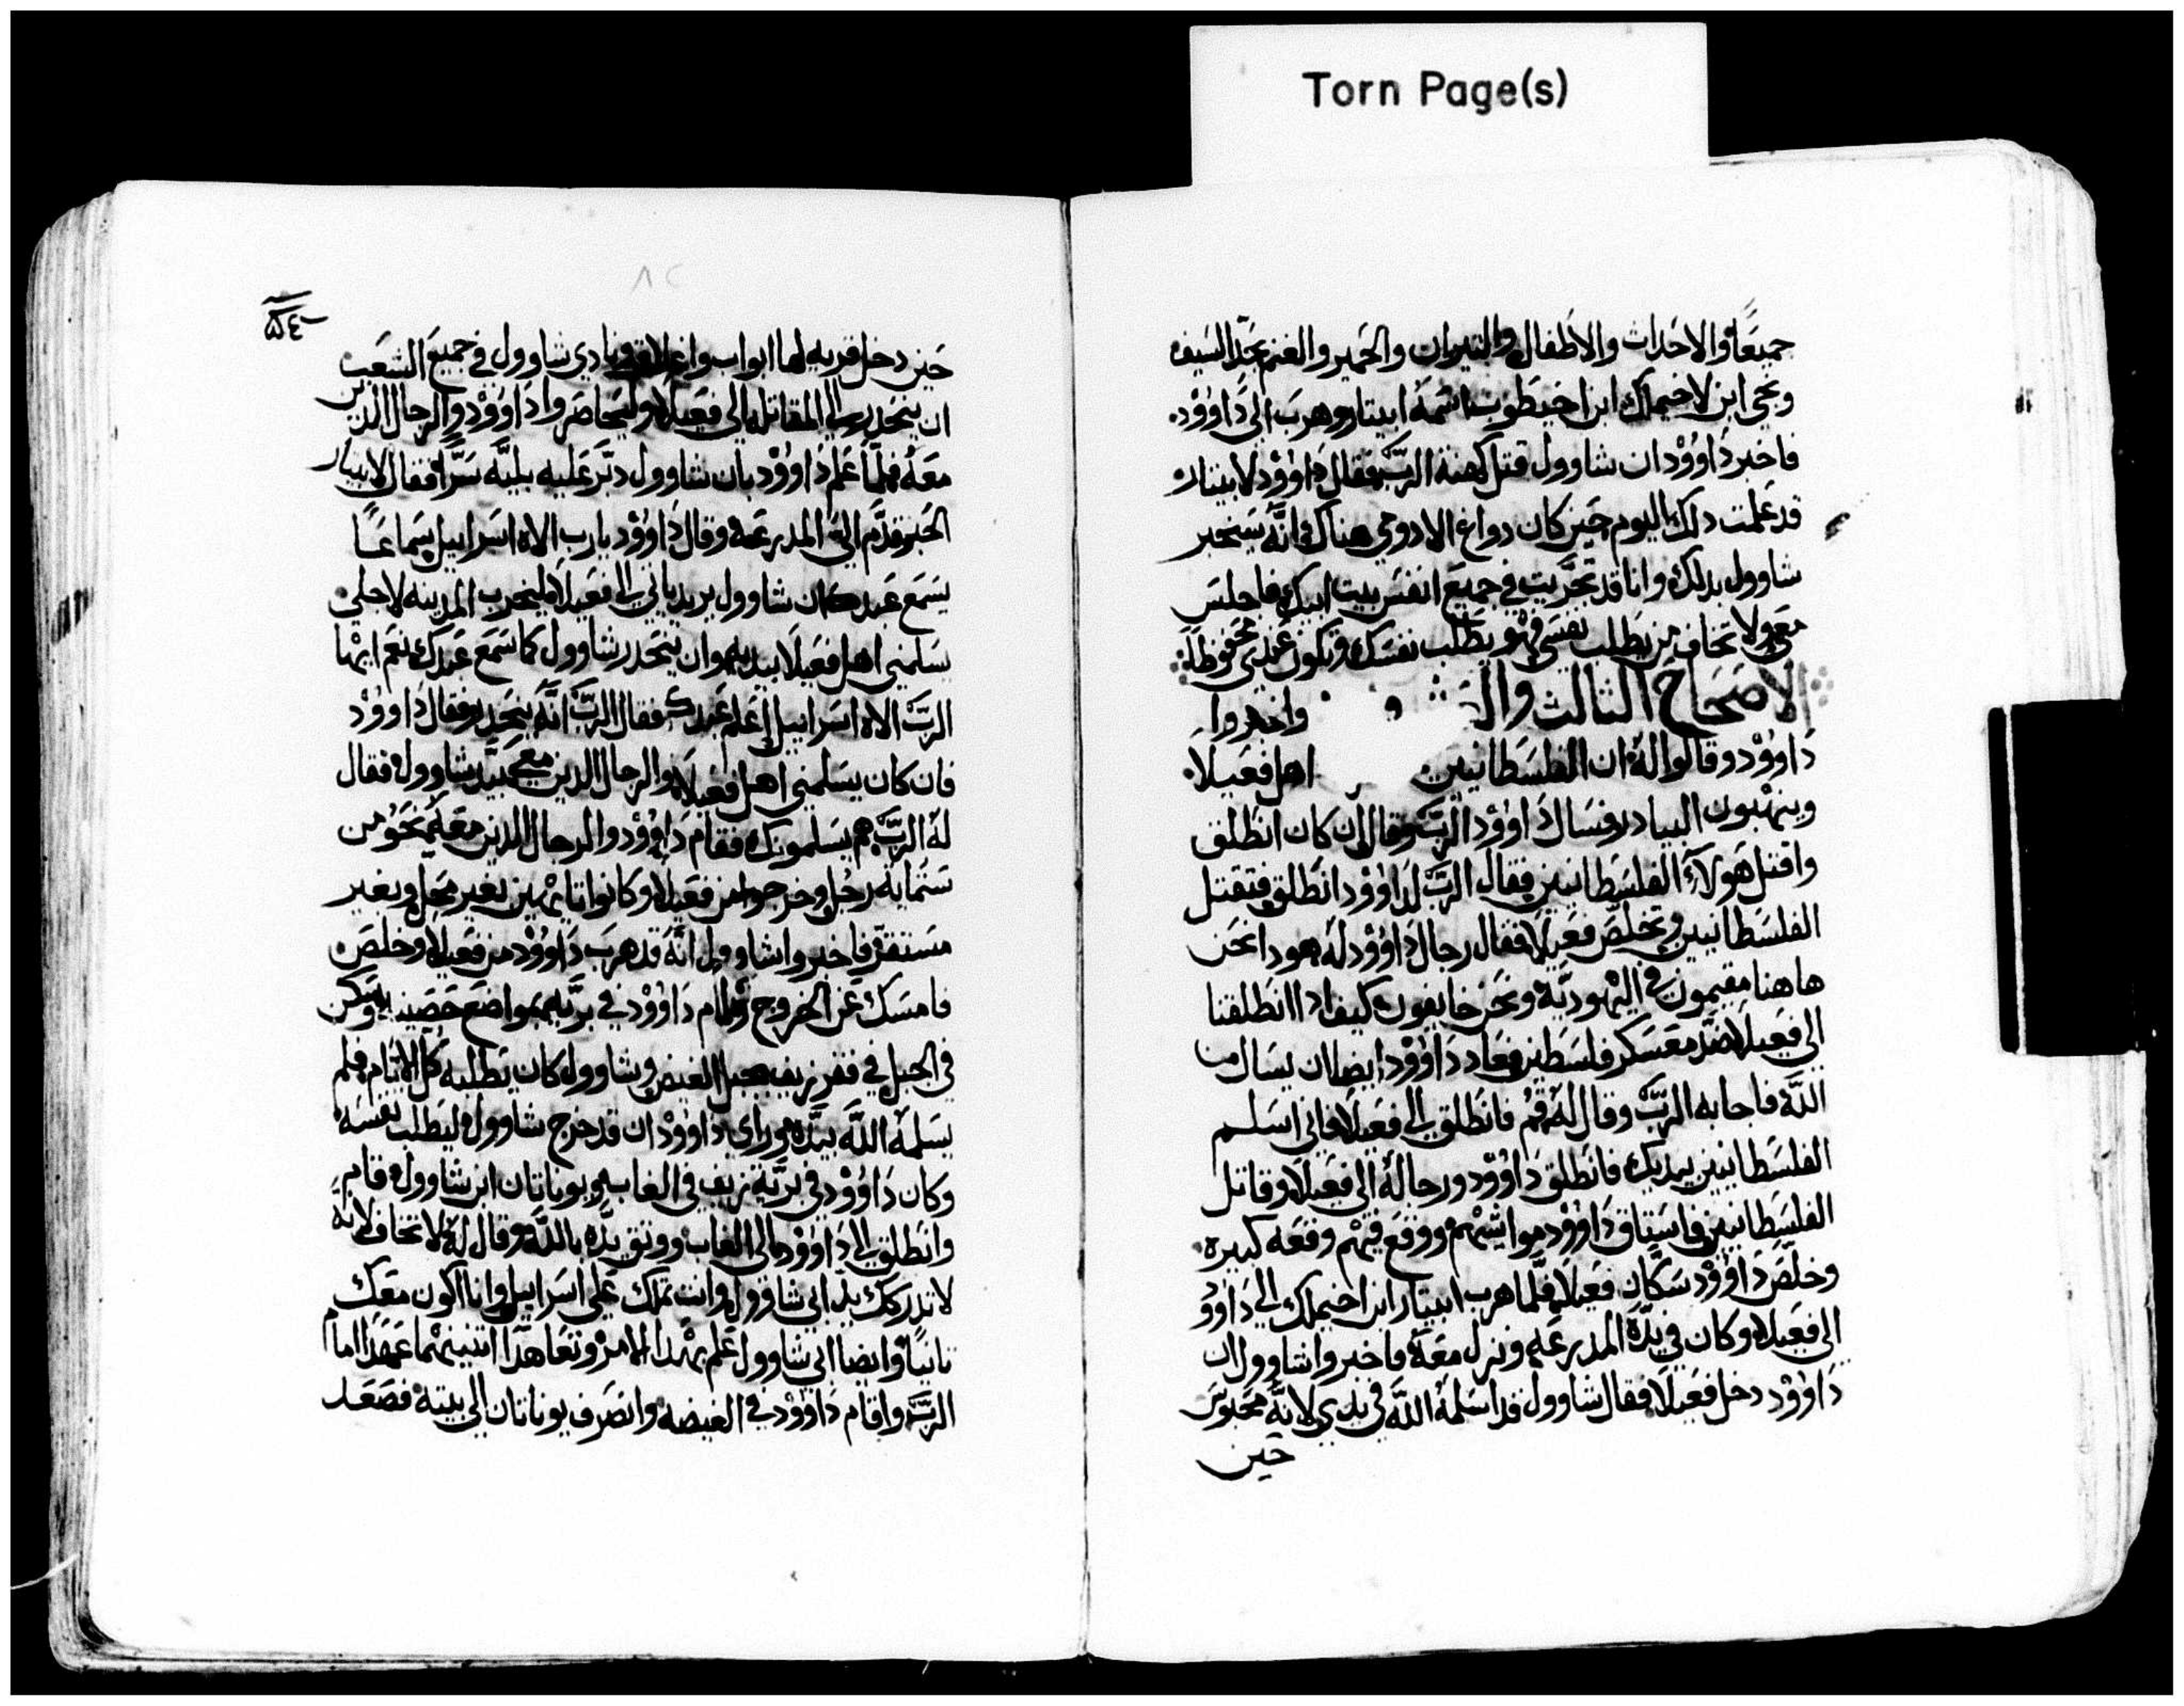 Torn Page(s)
جميعًا والاحداث والاطفال والتيران والحمير والغنم بحد السيف
ونجى ابن لاخيمالك ابن اخيطوب اسمه ابيتار وهرب الى داوود.
فاخبر داوود ان شاوول قتل كهنه الرب فقال داوود لابيتار
قد علمت دلك اليوم حين كان دواغ الادومي هناك فانه سيخبر
شاوول بدلك وانا قد تحريت في جميع انفس بيت ابيك فاجلس
معي ولا تخاف من يطلب نفسى فهو يطلب نفسك وتكون عندي محفوظا
الاصحاح الثالث وال واخبروا
داوود وقالوا له ان الفلسطانيين اهل فعيلا
وينهبون البيادر فسال داوود الرب وقال ان كان انطلق
واقتل هولاء الفلسطانيين فقال الرب لداوود انطلق فتقتل
الفلسطانيين وتخلص فعيلا فقال رجال داوود له هودا نحن
هاهنا مقيمون في اليهوديه ونحن خايفون كيف ادا انطلقنا
الى فعيلا ضد معسكر فلسطين فعاد داوود ايضا ان يسال من
الله فاجابه الرب وقال له قم فانطلق الى فعيلا فاني اسلم
الفلسطانيين بيديك فانطلق داوود ورجاله الى فعيلا وقاتل
الفلسطانيين واستاق داوود مواشيهم ووقع فيهم وقعه كبيره
وخلص داوود سكان فعيلا فلما هرب ابيتار ابن اخيملك الى داوو
الى فعيلا وكان في يده المدرعه ونزل معه فاخبروا شاوول ان
داوود دخل فعيلا فقال شاوول قد اسلمه الله في يدي لانه محبوس
حين
٥٤
٨٢
حين دخل قريه لها ابواب واغلاق فنادى شاوول في جميع الشعب
ان ينحدر الى المقاتله الى فعيلا وليحاصروا داوود والرجال الدين
معه فلما علم داوود بان شاوول دبر عليه بليه سرًا فقال لابيتار
الحبر قدم الي المدرعه وقال داوود يارب الاه اسراييل سماعًا
يسمع عبدك ان شاوول يريد ياتي الى فعيلا ليخرب المدينه لاجلي
يسلمني اهل فعيلا بيديه وان ينحدر شاوول كما سمع عبدك نعم ايها
الرب الاه اسراييل اعلم عبدك فقال الرب انه ينحدر فقال داوود
فان كان يسلمني اهل فعيلا والرجال الدين معي بيد شاوول فقال
له الرب هم يسلمونك فقام داوود والرجال الدين معه نحو من
ستمايه رجل وخرجوا من فعيلا وكانوا تايهين بغير محل وبغير
مستقر فاخبروا شاوول انه قد هرب داوود من فعيلا وخلص
فامسك عن الخروج واقام داوود في بريه بمواضع حصينه وسكن
في الجبل في قفر زيف بجبل الغيض وشاوول كان يطلبه كل الايام فلم
يسلمه الله بيده وراى داوود ان قد خرج شاوول ليطلب نفسه
وكان داوود في برية زيف في الغاب ويوناتان ابن شاوول قام
وانطلق الى داوود الى الغاب ووثق يده بالله وقال له لا تخاف لانه
لا تدركك يد ابي شاوول وانت تملك على اسراييل وانا اكون معك
تانيًا وايضا ابي شاوول علم بهدا الامر وتعاهدا اتنينهما عهدًا امام
الرب واقام داوود في الغيضه وانصرف يوناتان الى بيته فصعد